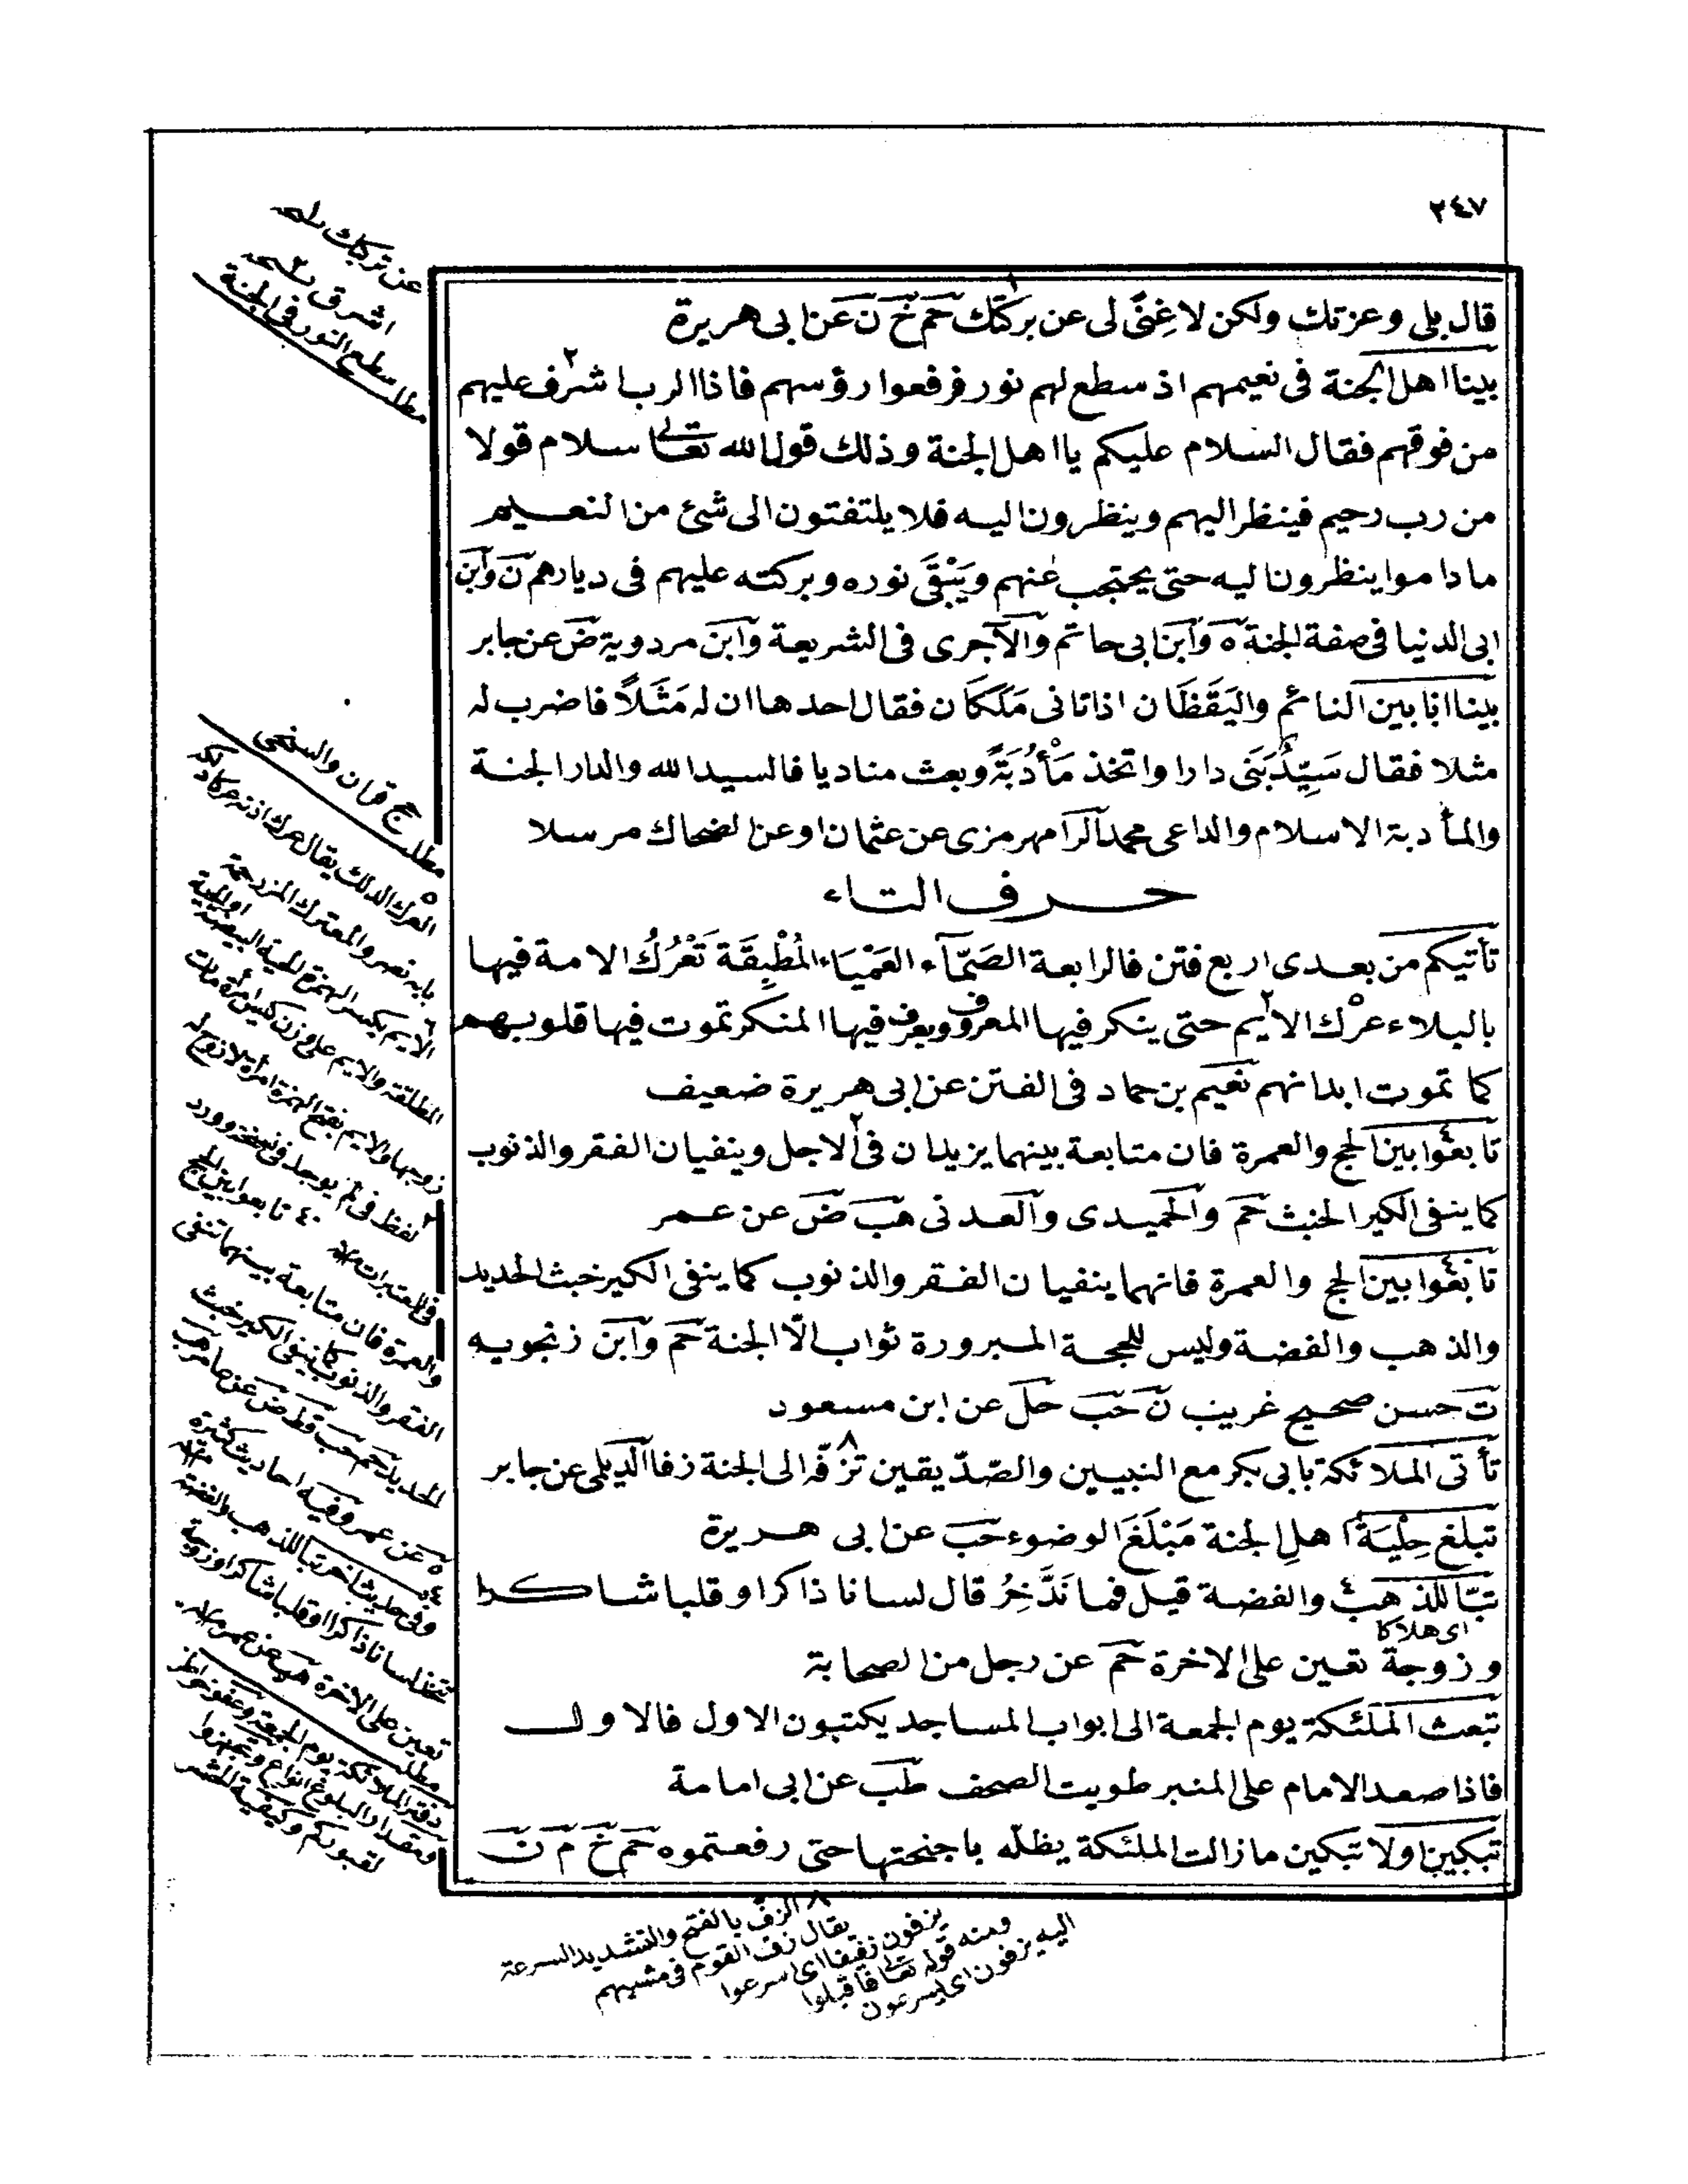 ٢٤٧
قال بلى وعزتك ولكن لا غِنًى لى عن بركتك حم خ ن عن ابى هريرة
بينا اهل الجنة فى نعيمهم اذ سطع لهم نور فرفعوا رؤسهم فاذا الرب اشرف عليهم
من فوقهم فقال السلام عليكم يا اهل الجنة وذلك قول الله تعالى سلام قولا
من رب رحيم فينظر اليهم وينظرون اليه فلا يلتفتون الى شئ من النعيم
ما داموا ينظرون اليه حتى يحتجب عنهم ويَبْقَى نوره وبركته عليهم فى ديارهم ن وابن
ابى الدنيا فى صفة الجنة ه وابن ابى حاتم والآجرى فى الشريعة وابن مردوية ض عن جابر
بينا انا بين النائم واليَقَظَان اذ اتانى مَلَكَان فقال احدهما ان له مَثَلاً فاضرب له
مثلا فقال سَيِّدٌ بَنَى دارا واتخذ مَأْدُبَةً وبعث مناديا فالسيد الله والدار الجنة
والمأدبة الاسلام والداعى محمد الرامهرمزى عن عثمان او عن الضحاك مرسلا
حرف التاء
تأتيكم من بعدى اربع فتن فالرابعة الصَمَّآء العَمْيَاء المُطْبِقَة تَعْرُكُ الامة فيها
بالبلاء عرْك الاديم حتى ينكر فيها المعروف ويعرف فيها المنكر تموت فيها قلوبهم
كما تموت ابدانهم نعيم بن حماد فى الفتن عن ابى هريرة ضعيف
تابعوا بين الحج والعمرة فان متابعة بينهما يزيدان فى الاجل وينفيان الفقر والذنوب
كما ينفى الكير الخبث حم والحميدى والعدنى هب ض عن عمر
تابعوا بين الحج والعمرة فانهما ينفيان الفقر والذنوب كما ينفى الكير خبث الحديد
والذهب والفضة وليس للحجة المبرورة ثواب الّا الجنة حم وابن زنجويه
ت حسن صحيح غريب ن حب حل عن ابن مسعود
تأتى الملائكة بابى بكر مع النبيين والصّدّيقين تزفّه الى الجنة زفا الديلمى عن جابر
تبلغ حِلْيَةُ اهلِ الجنة مَبْلَغَ الوضوء حب عن ابى هريرة
تبّا للذهب والفضة قيل فما نَدَّخِرُ قال لسانا ذاكرا وقلبا شاكرا
اى هلاكا
وزوجة تعين على الاخرة حم عن رجل من الصحابة
تبعث الملئكة يوم الجمعة الى ابواب المساجد يكتبون الاول فالاول
فاذا صعد الامام على المنبر طويت الصحف طب عن ابى امامة
تبكين او لا تبكين ما زالت الملئكة يظلّه باجنحتها حتى رفعتموه حم خ م ن
اشرق نسخه
مطلب سطع النور فى الجنة
مطلب حج قران والسفحى
العرك الدلك يقال عرك اذنه
بابه نصر والمعترك المزدحمة
زوجها والايم بفتح الهمزة امرأة لا زوج له
لفظ فى لم يوجد فى نسخة وورد
فى المعتبرات ٤ تابعوا بين الحج
والعمرة فان متابعة بينهما تنفى
الفقر والذنوب كما ينفى الكير خبث
الحديد حم حب قط ض عن عامر هب
عن عمر وفيه احاديث كثيرة
وفى حديث اخر تبا للذهب والفضة
تتخذ لسانا ذاكرا او قلبا شاكرا او زوجة
تعين على الاخرة هب عن عمر
مطلب
دفتر الملائكة يوم الجمعة
لقبوركم وكيفية المحشر
٨ الزفّ بالفتح والتشديد السرعة
يقال زف القوم فى مشيهم
يزفون زفيفا اى اسرعوا
ومنه قوله تعالى فاقبلوا
اليه يزفون اى يسرعون